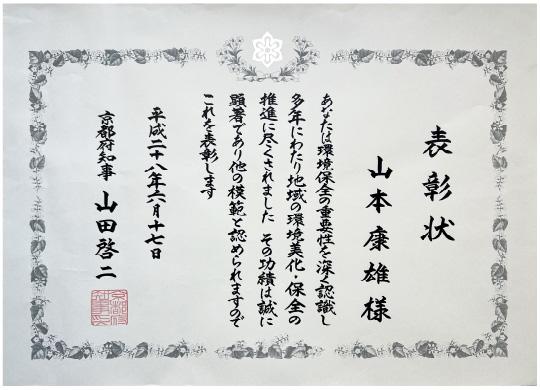 表彰状
山本康雄様
あなたは環境保全の重要性を深く認識し
多年にわたり地域の環境美化・保全の
推進に尽くされました その功績は誠に
顕著であり他の模範と認められますので
これを表彰します
平成二十八年六月十七日
京都府知事 山田啓二